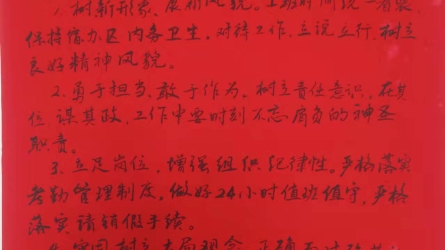 1. 树新形象、展新风貌。上班时间统一着装,
保持值办区内务卫生,对待工作,立说立行,树立
良好精神风貌。
2. 勇于担当,敢于作为。树立责任意识,在其
位,谋其政,工作中要时刻不忘肩负的神圣
职责。
3. 立足岗位,增强组织纪律性。严格落实
考勤管理制度,做好24小时值班值守,严格
落实请销假手续。
树立大局观念,正确